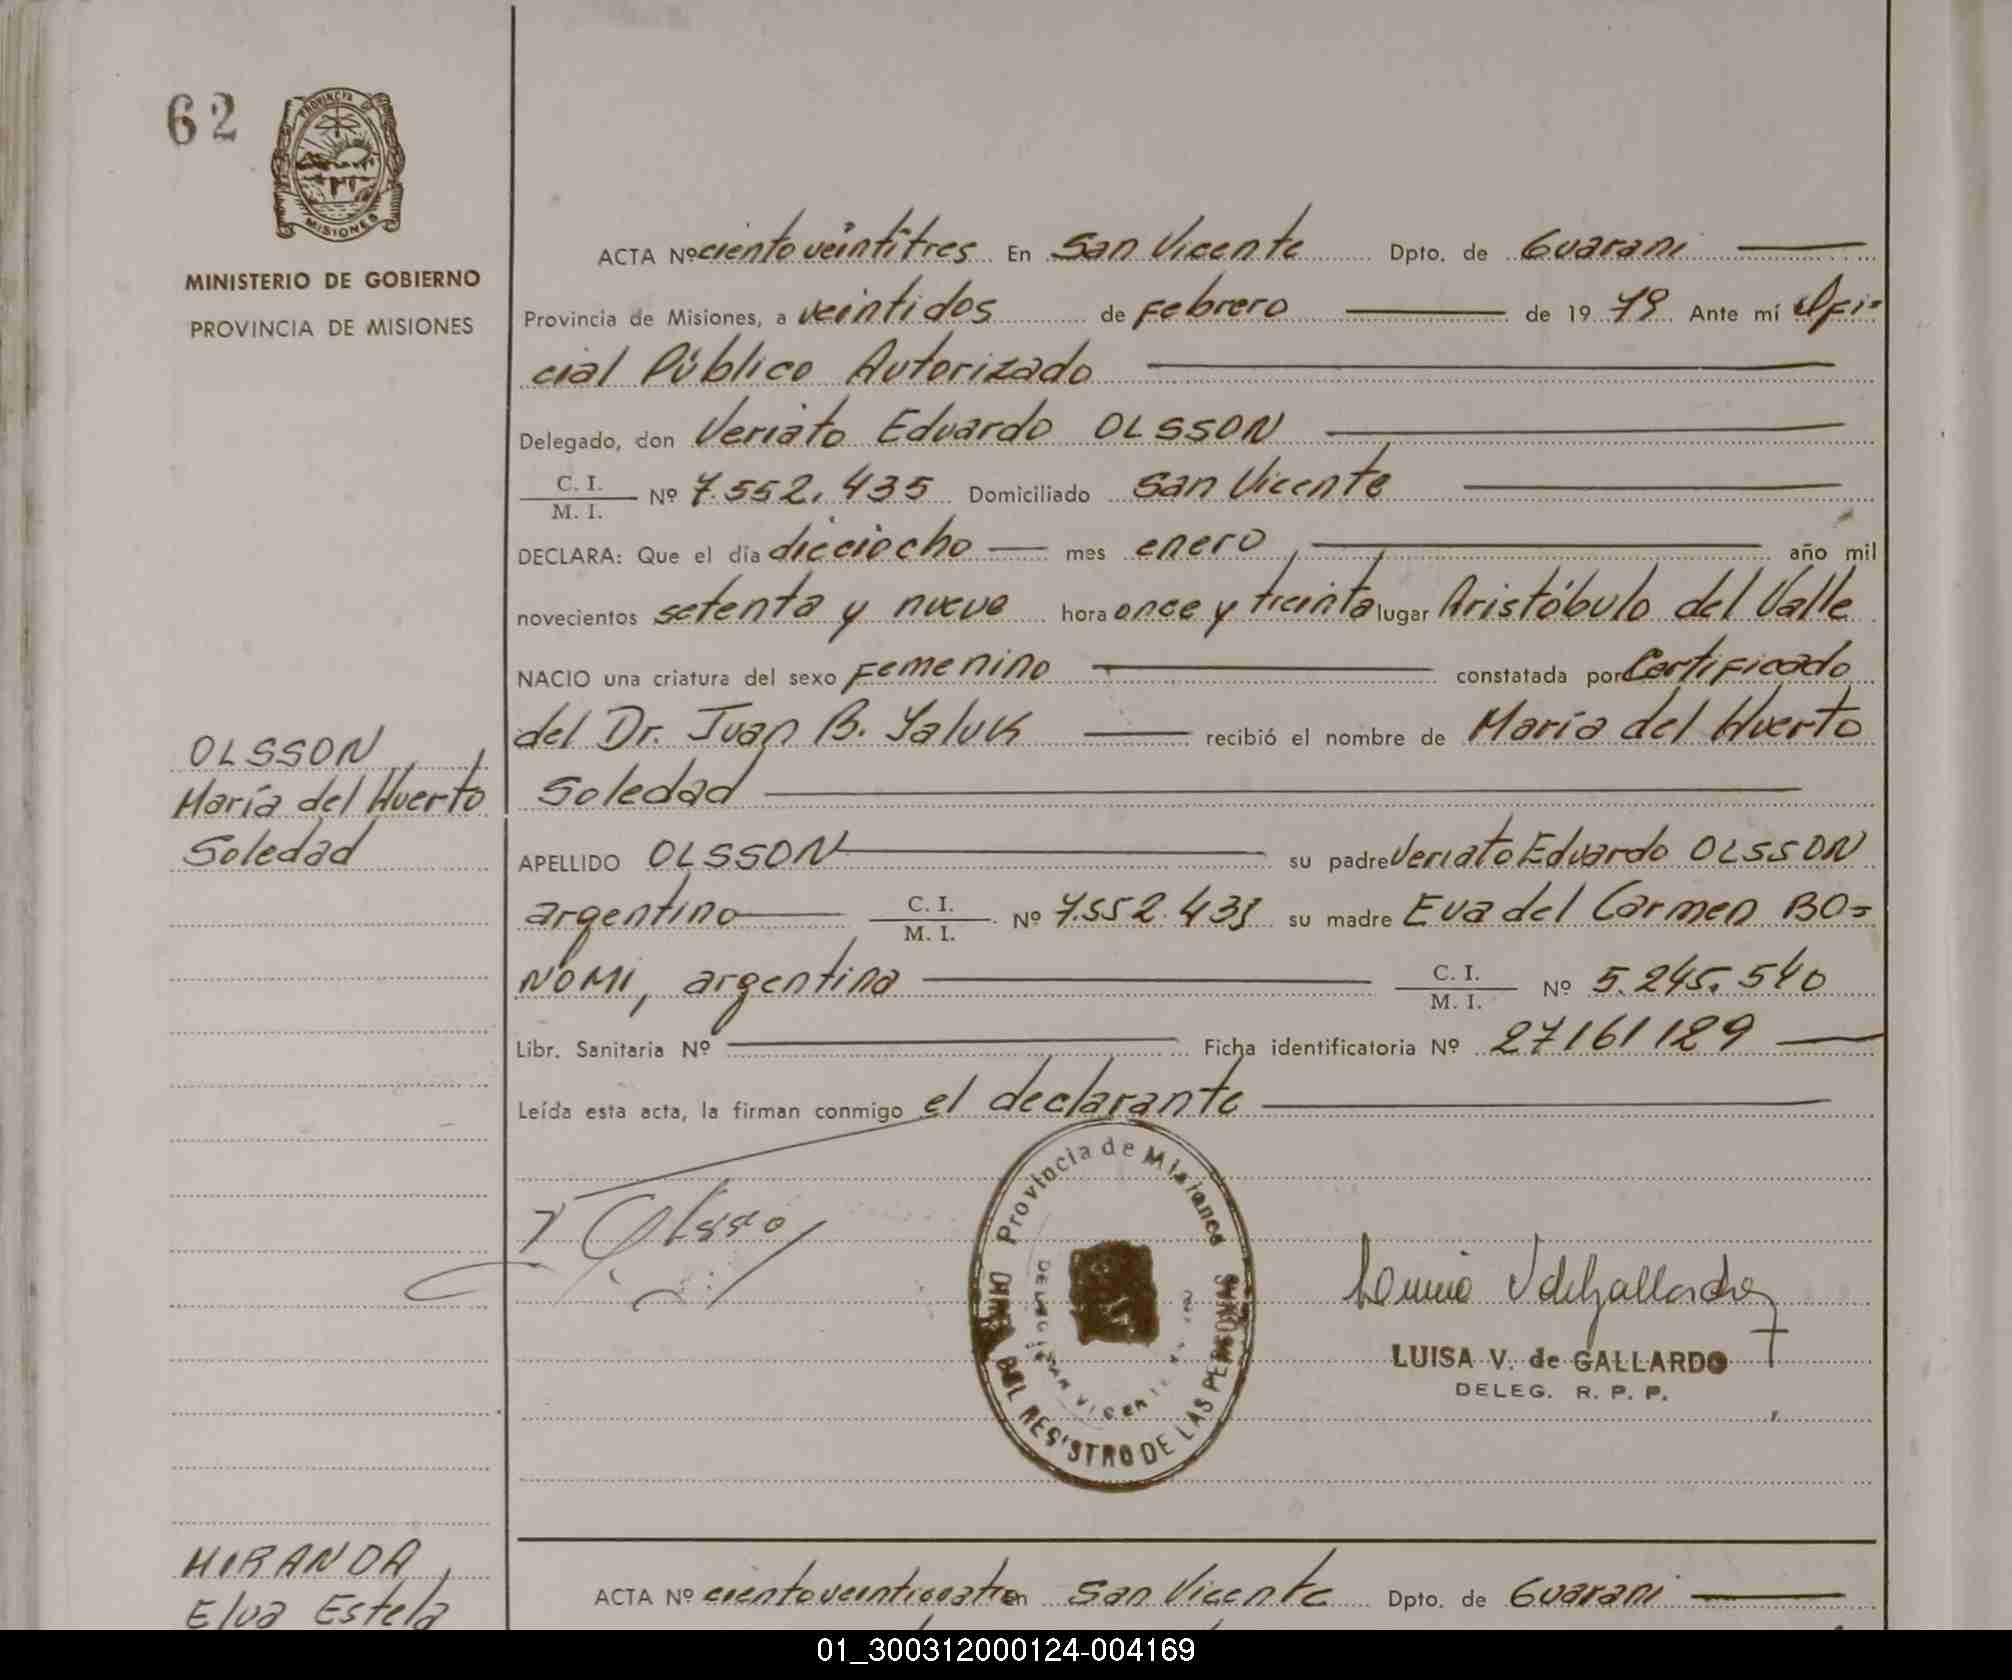 62
PROVINCIA DE
MISIONES
MINISTERIO DE GOBIERNO
PROVINCIA DE MISIONES
OLSSON,
María del Huerto
Soledad
ACTA Nº ciento veintitres En San Vicente Dpto. de Guarani
Provincia de Misiones, a veintidos de Febrero de 1979 Ante mí Ofi-
cial Público Autorizado
Delegado, don Veriato Eduardo OLSSON
C. I.
M. I. Nº 7.552.435 Domiciliado San Vicente
DECLARA: Que el día dieciocho mes enero, año mil
novecientos setenta y nueve hora once y treinta lugar Aristóbulo del Valle
NACIO una criatura del sexo Femenino constatada por Certificado
del Dr. Juan B. Yaluk recibió el nombre de María del Huerto
Soledad
APELLIDO OLSSON su padre Veriato Eduardo OLSSON
argentino C. I. M. I. Nº 7.552.435 su madre Eva del Carmen BO=
NOMI, argentina C. I. M. I. Nº 5.245.540
Libr. Sanitaria Nº Ficha identificatoria Nº 27161129
Leída esta acta, la firman conmigo el declarante
Provincia de Misiones
DEL REGISTRO DE LAS PERSONAS
SAN VICENTE
LUISA V. de GALLARDO
DELEG. R. P. P.
MIRANDA,
Elva Estela
ACTA Nº ciento veinticuatro En San Vicente Dpto. de Guarani
01_300312000124-004169